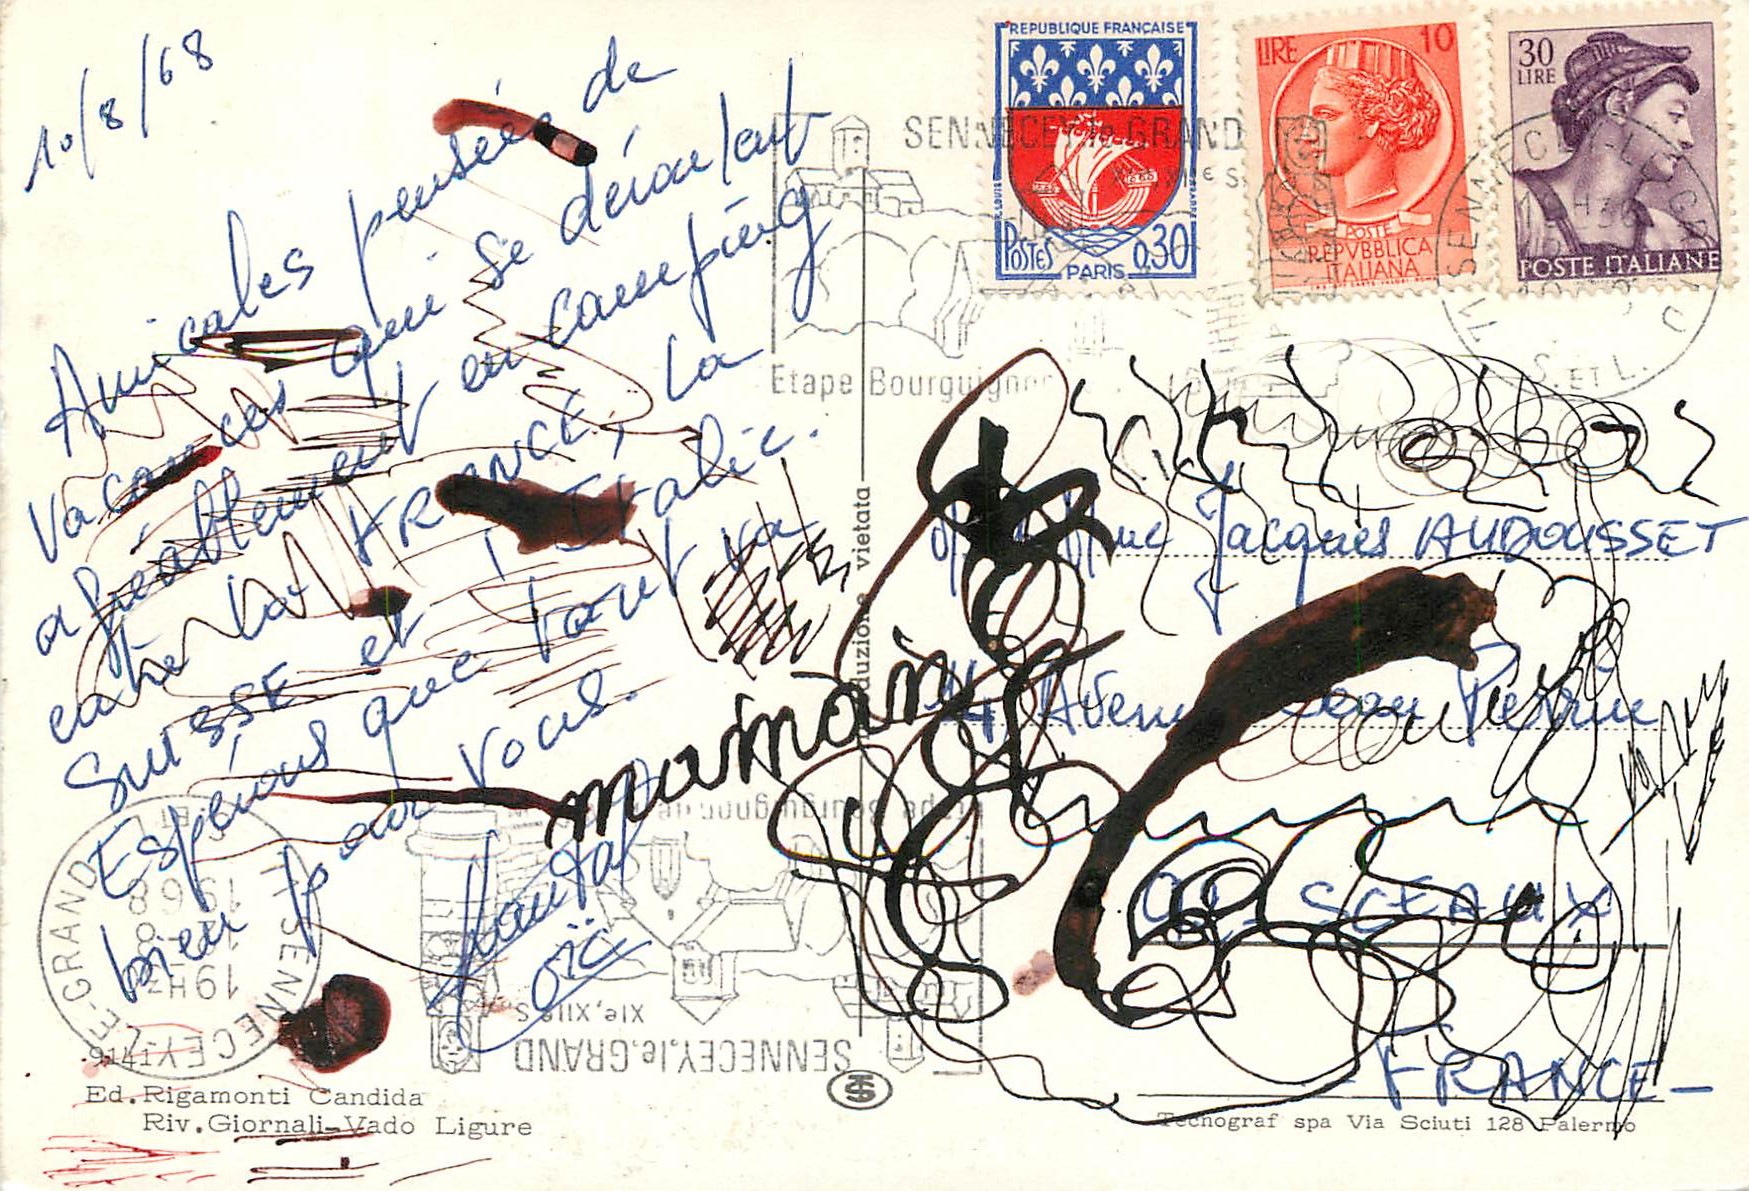 10/8/68
Amicales pensée de
vacances qui se déroulent
agréablement en camping
entre la FRANCE, la
SUISSE et l'Italie.
Espérons que tout va
bien pour vous.
maman
REPUBLIQUE FRANÇAISE
POSTES 0,30
PARIS
LIRE 10
POSTE
REPVBBLICA
ITALIANA
30
LIRE
POSTE ITALIANE
SENNECEY-le-GRAND
Etape Bourguignonne
SENNECEY-LE-GRAND
71
S. ET L.
Jacques AUDOUSSET
Avenue Jean Perrin
SCEAUX
-FRANCE-
duzione vietata
71 SENNECEY-LE-GRAND
19H
1968
SENNECEY.le.GRAND
XIe, XIIe S
91411
Ed.Rigamonti Candida
Riv.Giornali-Vado Ligure
Tecnograf spa Via Sciuti 128 Palermo